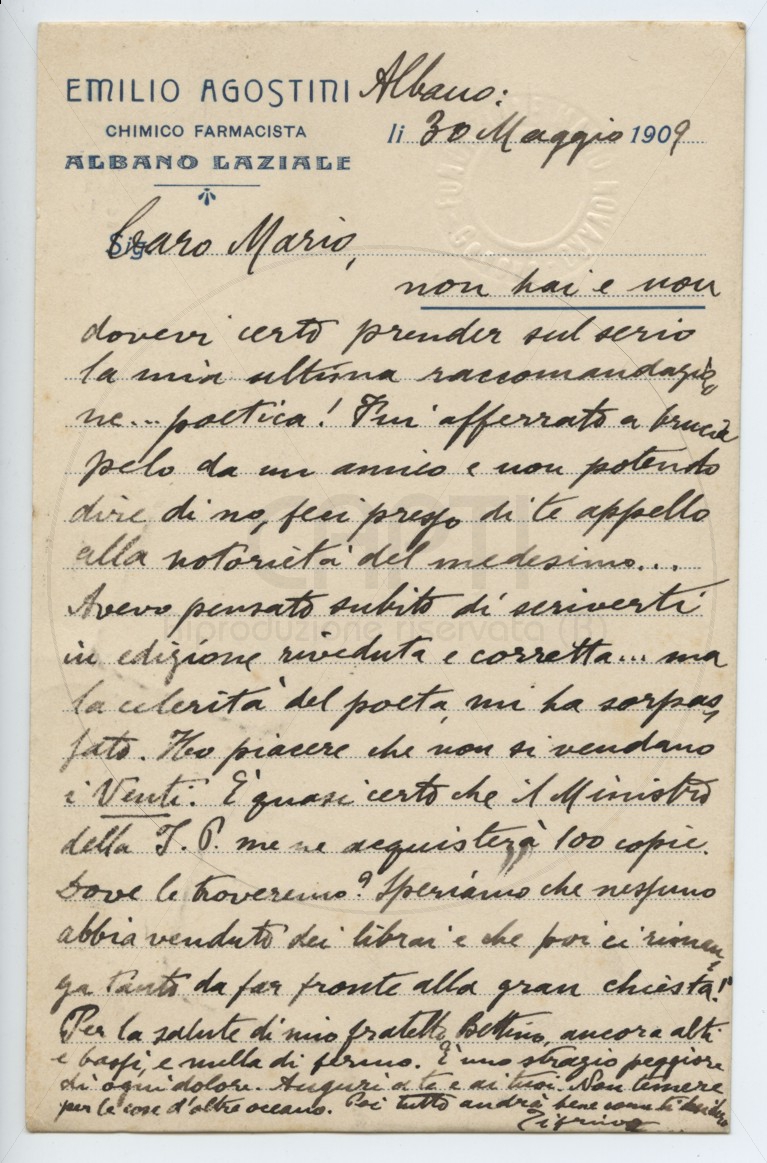 EMILIO AGOSTINI Albano:
CHIMICO FARMACISTA
li 30 Maggio 1909
ALBANO LAZIALE
Sig. Caro Mario,
non hai e non
dovevi certo prender sul serio
la mia ultima raccomandazio
ne... poetica! Fui afferrato a brucia
pelo da un amico e non potendo
dire di no, feci presso di te appello
alla notorietà del medesimo...
Avevo pensato subito di scriverti
in edizione riveduta e corretta... ma
la celerità del poeta, mi ha sorpas
sato. Ho piacere che non si vendano
i Venti. È quasi certo che il Ministro
della I. P. me ne acquisterà 100 copie.
Dove le troveremo? Speriamo che nessuno
abbia venduto dei librai e che poi ci riman
ga tanto da far fronte alla gran chiesta!
Per la salute di mio fratello Bettino, ancora alti
e bassi, e nulla di fermo. È uno strazio peggiore
di ogni dolore. Auguri a te e ai tuoi. Non temere
per le cose d'oltre oceano. Poi tutto andrà bene come ti desidero